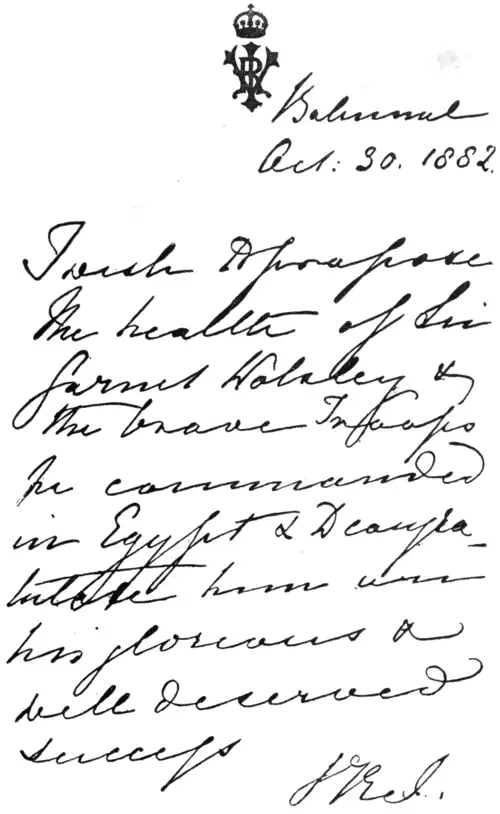 VRI
Balmoral
Oct: 30. 1882.
I wish to propose
the health of Sir
Garnet Wolseley &
the brave Troops
he commanded
in Egypt & to congra-
tulate him on
his glorious &
well deserved
success
VRI.